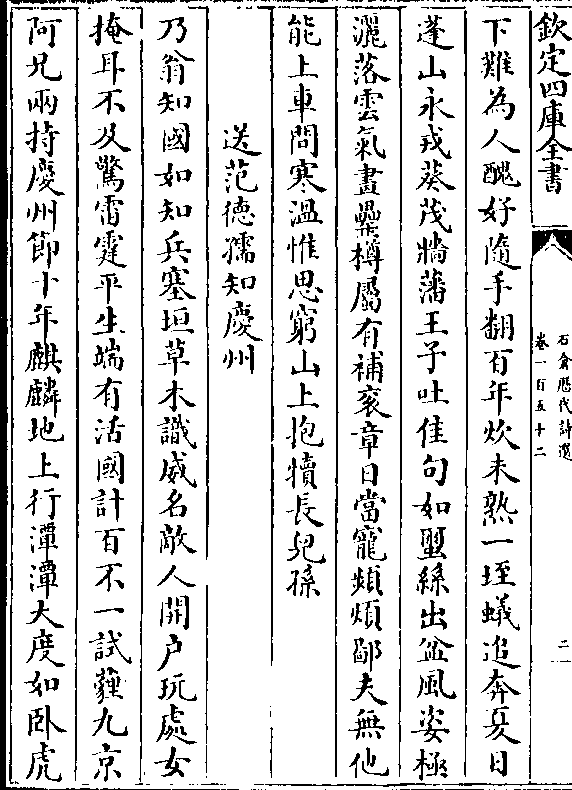 欽定四庫全書
石倉歷代詩選
卷一百五十二
二
下難為人醜好隨手翻百年炊未熟一垤蟻追奔夏日
蓬山永戎葵茂牆藩王子吐佳句如蠒絲出盆風姿極
灑落雲氣畫罍樽屬有補衮章日當寵頻煩鄙夫無他
能上車問寒溫惟思窮山上抱犢長兒孫
送范德孺知慶州
乃翁知國如知兵塞垣草木識威名敵人開戶玩處女
掩耳不及驚雷霆平生端有活國計百不一試薶九京
阿兄兩持慶州節十年麒麟地上行潭潭大度如臥虎